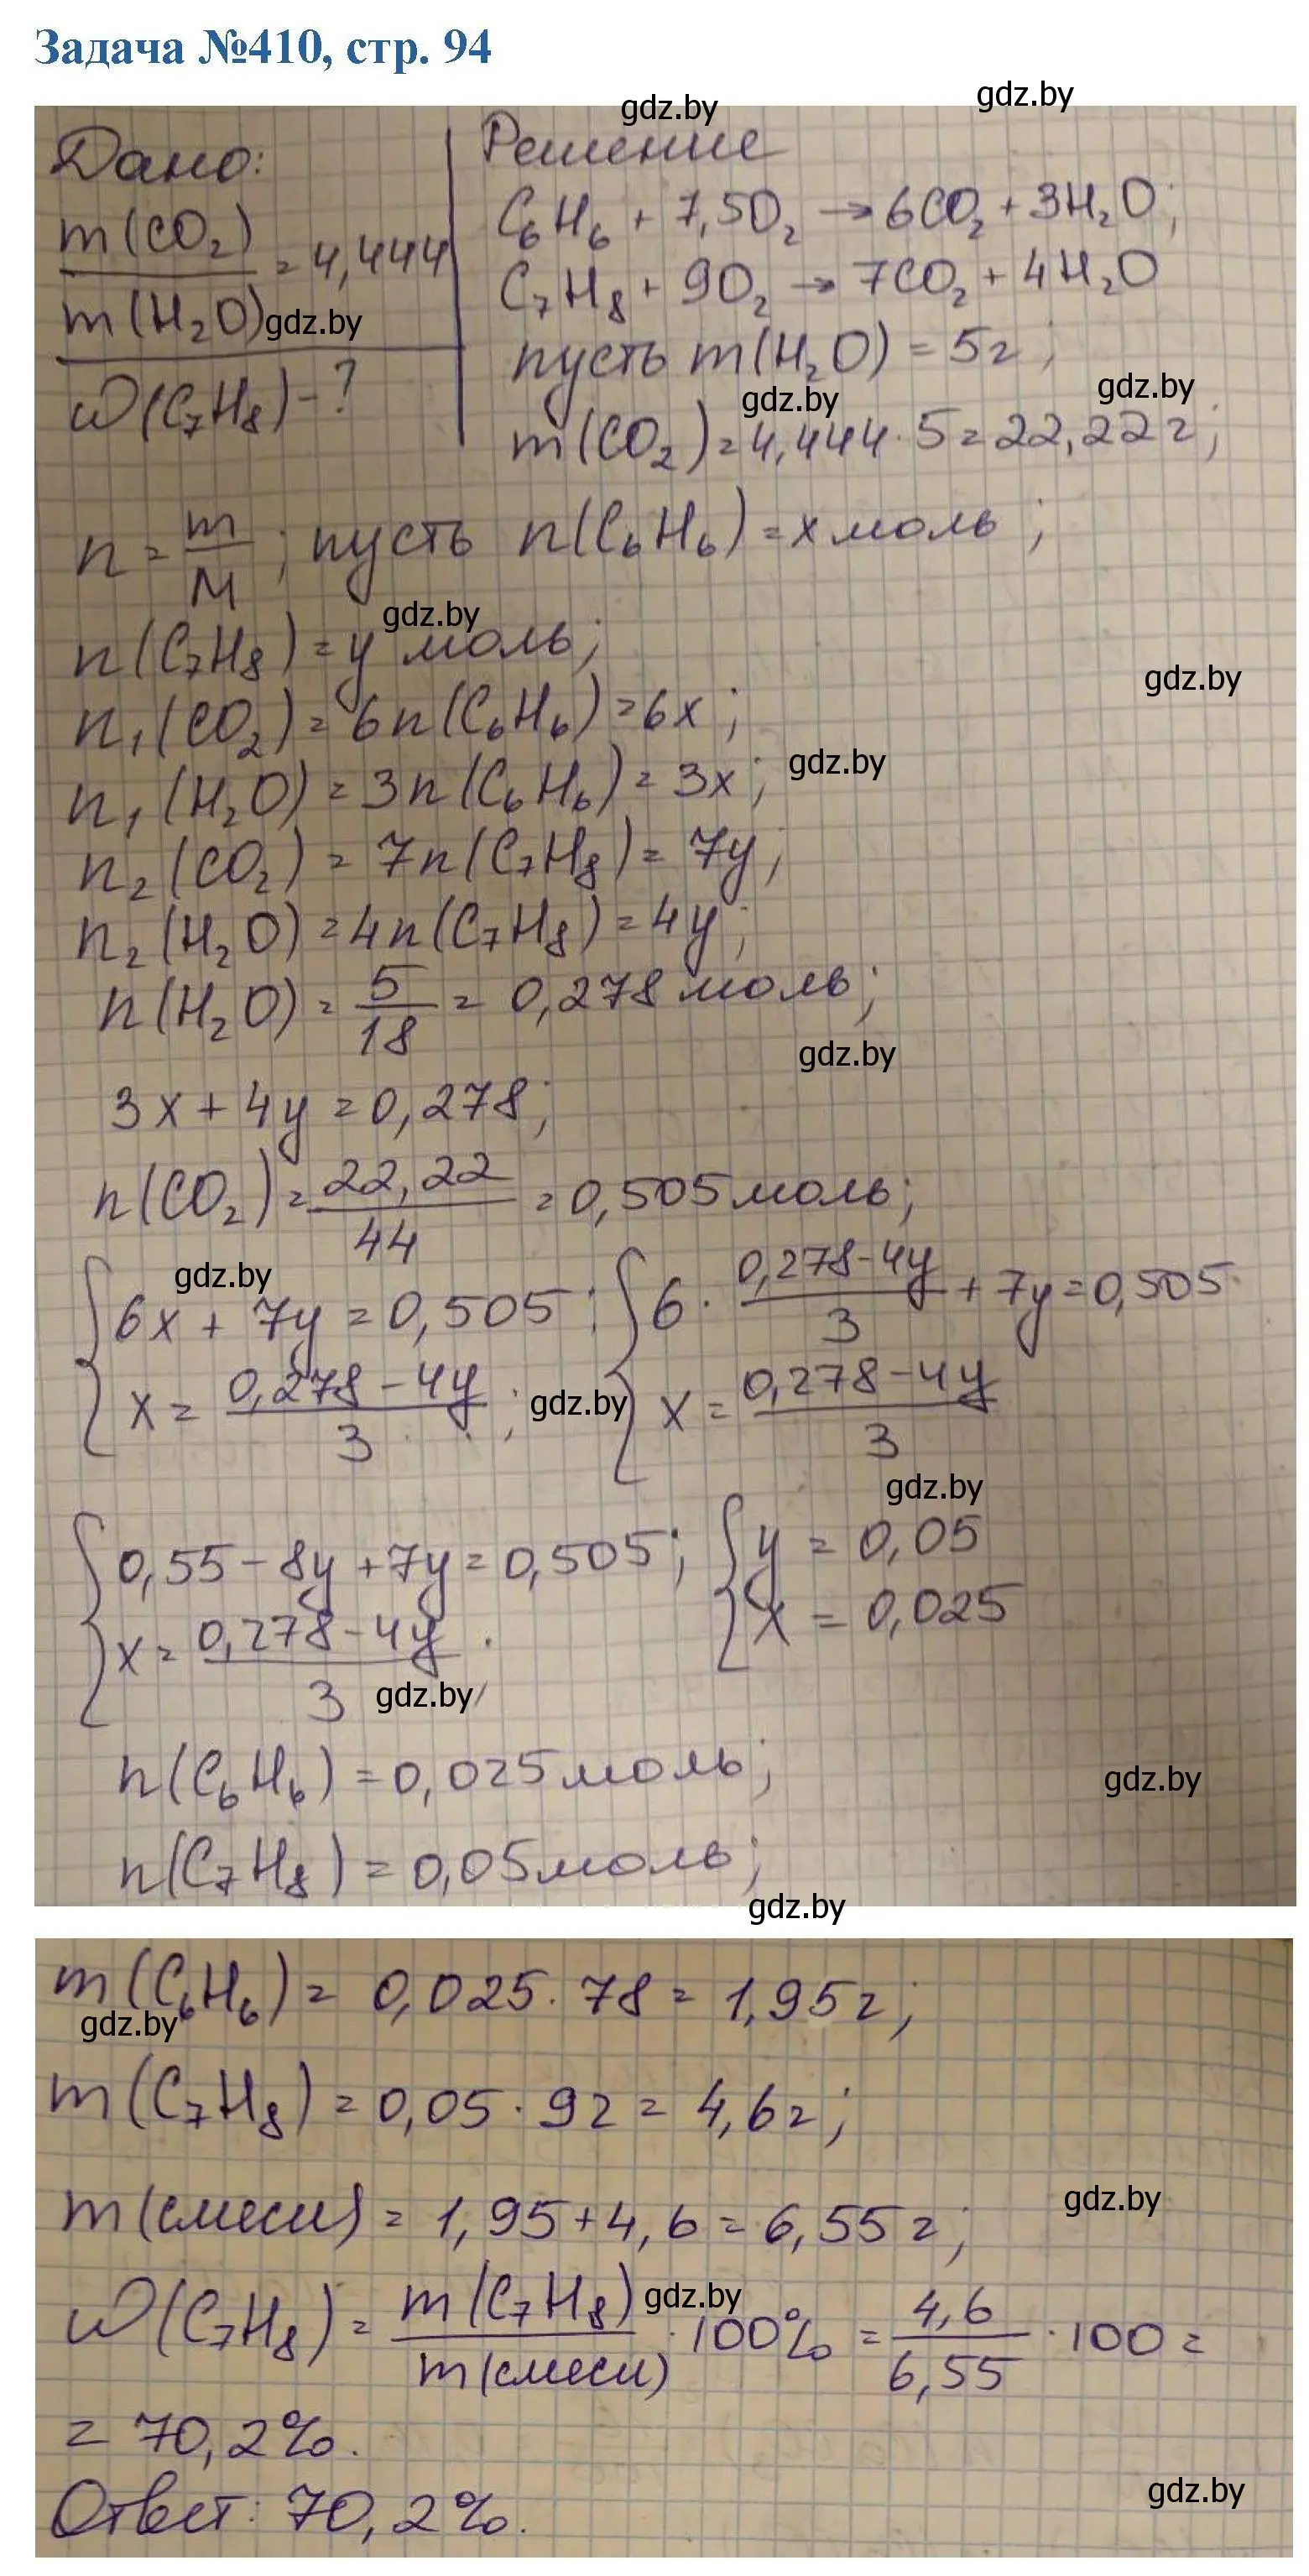 Задача №410, стр. 94
gdz.by
gdz.by
Дано:
m(CO₂)
/
m(H₂O)
= 4,444
gdz.by
ω(C₇H₈) - ?
Решение
C₆H₆ + 7,5O₂ → 6CO₂ + 3H₂O;
C₇H₈ + 9O₂ → 7CO₂ + 4H₂O
пусть m(H₂O) = 5г;
gdz.by
gdz.by
m(CO₂) = 4,444 · 5 = 22,22г;
n = m/M; пусть n(C₆H₆) = x моль;
gdz.by
n(C₇H₈) = y моль;
gdz.by
n₁(CO₂) = 6n(C₆H₆) = 6x;
gdz.by
n₁(H₂O) = 3n(C₆H₆) = 3x;
n₂(CO₂) = 7n(C₇H₈) = 7y;
n₂(H₂O) = 4n(C₇H₈) = 4y;
n(H₂O) = 5/18 = 0,278 моль;
gdz.by
3x + 4y = 0,278;
n(CO₂) = 22,22/44 = 0,505 моль;
gdz.by
{ 6x + 7y = 0,505; { 6 · (0,278-4y)/3 + 7y = 0,505
x = (0,278-4y)/3; x = (0,278-4y)/3
gdz.by
gdz.by
{ 0,55 - 8y + 7y = 0,505; { y = 0,05
x = (0,278-4y)/3 x = 0,025
gdz.by
n(C₆H₆) = 0,025 моль;
gdz.by
n(C₇H₈) = 0,05 моль;
gdz.by
m(C₆H₆) = 0,025 · 78 = 1,95г;
gdz.by
m(C₇H₈) = 0,05 · 92 = 4,6г;
gdz.by
m(смеси) = 1,95 + 4,6 = 6,55г;
gdz.by
ω(C₇H₈) = m(C₇H₈)/m(смеси) · 100% = 4,6/6,55 · 100 =
= 70,2%.
gdz.by
Ответ: 70,2%.